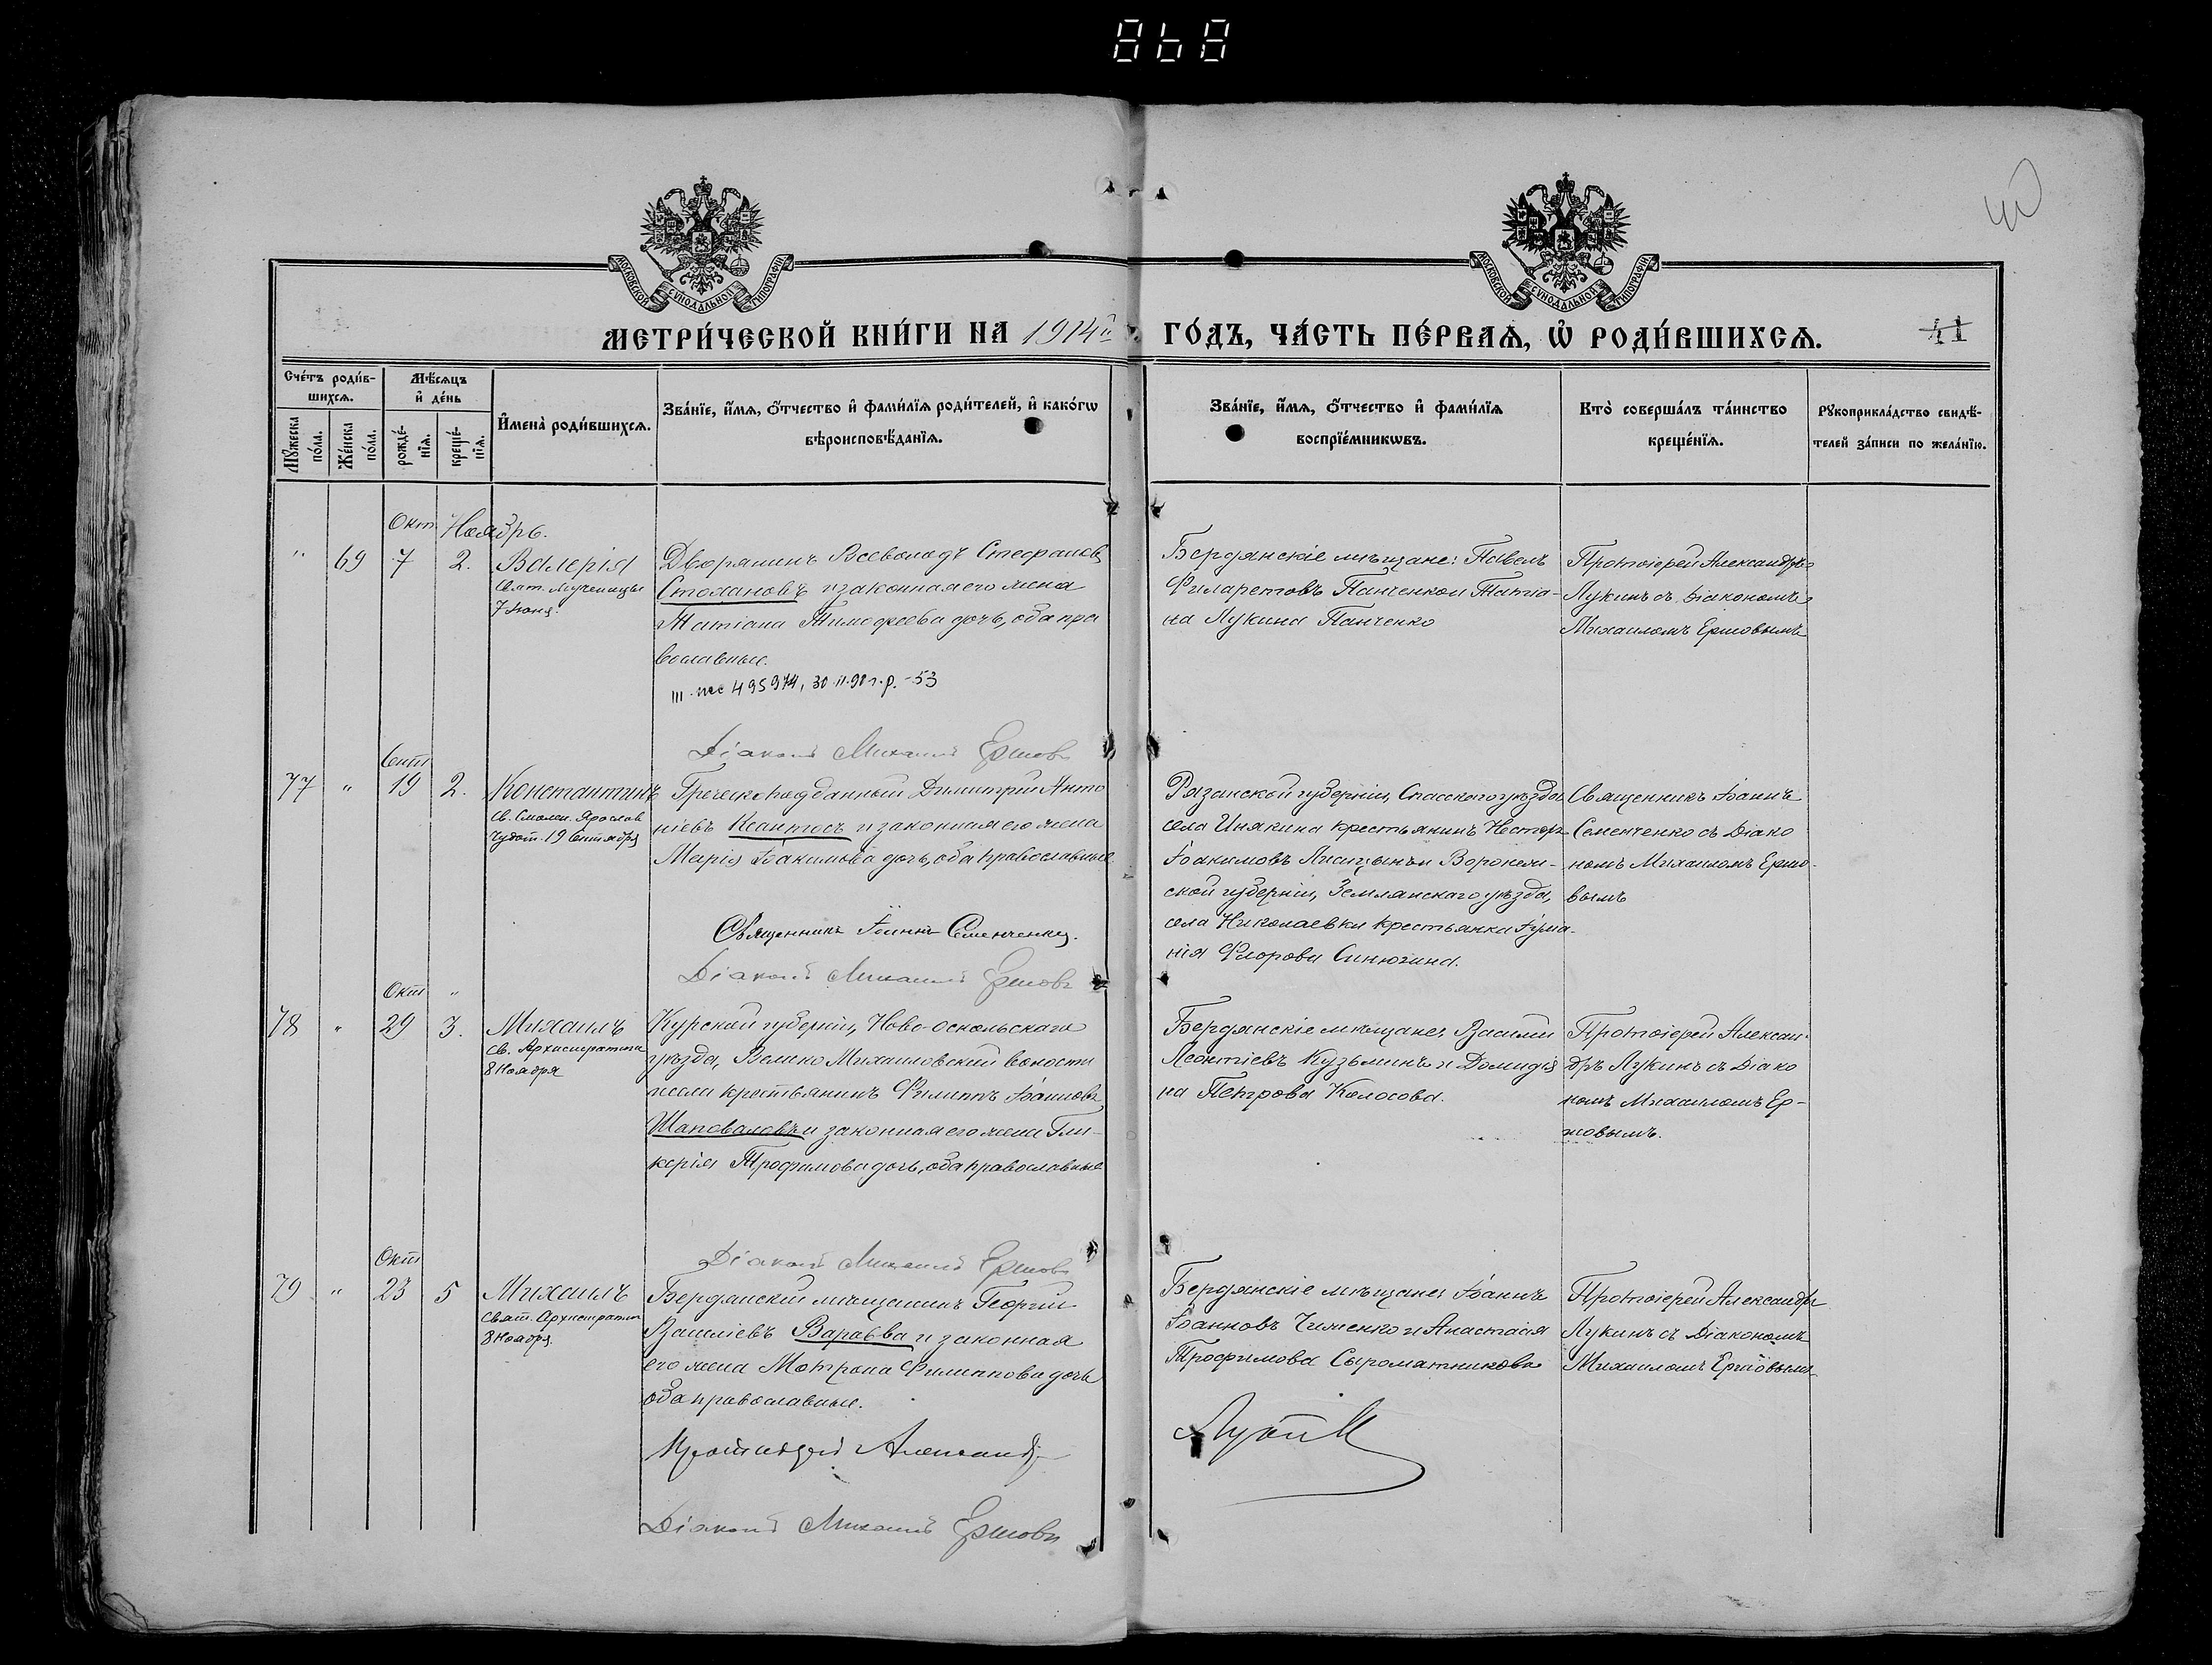 868
МОСКОВСКОЙ СУНОДАЛЬНОЙ ТИПОГРАФІИ
МОСКОВСКОЙ СУНОДАЛЬНОЙ ТИПОГРАФІИ
МЕТРИ́ЧЕСКОЙ КНИ́ГИ НА 1914й ГО́ДЪ, ЧА́СТЬ ПЕ́РВАѦ, Ѽ РОДИ́ВШИХСѦ.
41
Сче́тъ роди́в-
шихсѧ.
Мꙋ́жеска
по́ла.
Же́нска
по́ла.
Мѣ́сѧцъ
и҆ де́нь
рожде́-
нїѧ.
креще́-
нїѧ.
И҆мена̀ роди́вшихсѧ.
Зва́нїе, и҆́мѧ, ѻ҆́тчество и҆ фами́лїѧ роди́телей, и҆ како́гѡ
вѣроисповѣ́данїѧ.
Зва́нїе, и҆́мѧ, ѻ҆́тчество и҆ фами́лїѧ
воспрїе́мникѡвъ.
Кто̀ соверша́лъ та́инство
креще́нїѧ.
Рꙋкоприкла́дство свидѣ́-
телей за́писи по жела́нїю.
Окт. Ноябрь.
" 69 7 2.
Валерія
Свят. Мученицы
7 Іюня.
Дворянинъ Всеволодъ Стефановъ
Стояновъ и законная его жена
Татіана Тимофеева дочь, оба пра
вославные.
495974, 30.11.90 г.р. -53
Діаконъ Михаилъ Ершовъ
Бердянскіе мѣщане: Павелъ
Филаретовъ Панченко и Татіа-
на Лукина Панченко
Протоіерей Александръ
Лукинъ съ Діакономъ
Михаиломъ Ершовымъ
Сент
77 " 19 2.
Константинъ
Св. Смолен. Яросл
Чудот. 19 Сентября
Греческоподданный Димитрій Анто
ніевъ Ксантосъ и законная его жена
Марія Іоакимова дочь, оба православные
Священникъ Іоаннъ Семенченко.
Діаконъ Михаилъ Ершовъ
Рязанской губерніи, Спасскаго уѣзда
села Инякина крестьянинъ Несторъ
Іоакимовъ Лисицынъ и Воронеж-
ской губерніи, Землянскаго уѣзда,
села Николаевки крестьянка Іула-
нія Флорова Синюгина.
Священникъ Іоаннъ
Семенченко съ Діако
номъ Михаиломъ Ершо-
вымъ
Окт "
78 " 29 3.
Михаилъ
Св. Архистратига
8 Ноября
Курской губерніи, Ново-оскольскаго
уѣзда, Велико Михаиловской волости
крестьянинъ Филиппъ Іоанновъ
Шаповаловъ и законная его жена Гли-
керія Трофимова дочь, оба православные
Діаконъ Михаилъ Ершовъ
Бердянскіе мѣщане: Василій
Леонтіевъ Кузьминъ и Домиди
на Петрова Колосова.
Протоіерей Алексан-
дръ Лукинъ съ Діако
номъ Михаиломъ Ер-
шовымъ.
Окт
79 " 23 5
Михаилъ
Свят. Архистратига
8 Ноября
Бердянскій мѣщанинъ Георгій
Василіевъ Варавва и законная
его жена Матрона Филиппова дочь
оба православные.
Протоіерей Александръ Лукинъ
Діаконъ Михаилъ Ершовъ
Бердянскіе мѣщане: Іоаннъ
Іоанновъ Чименко и Анастасія
Трофимова Сыромятникова
Протоіерей Александръ
Лукинъ съ Діакономъ
Михаиломъ Ершовымъ